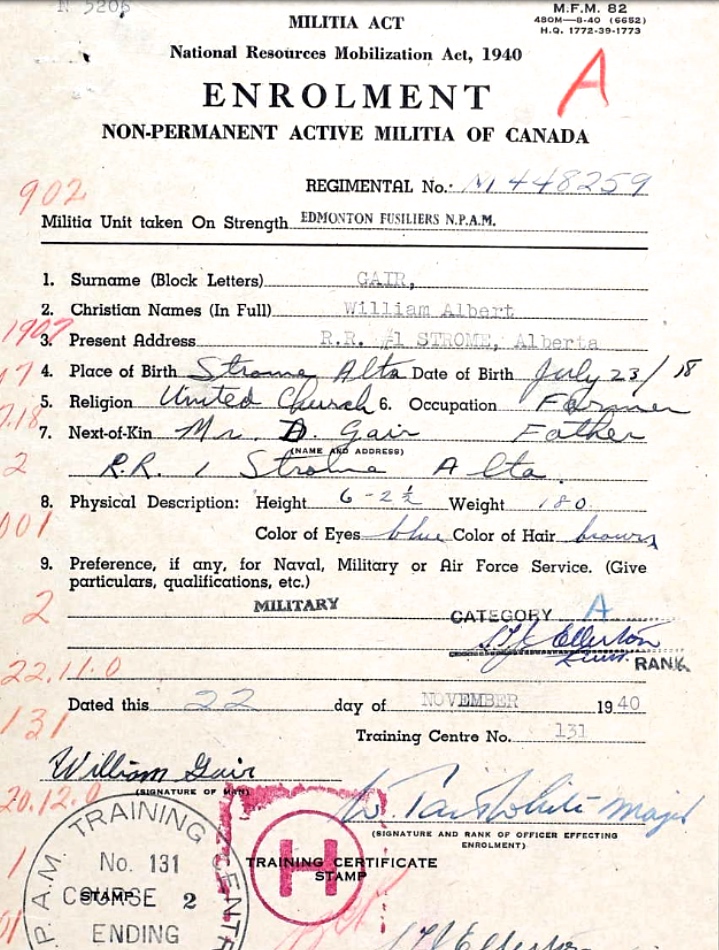 N 5206
MILITIA ACT
M.F.M. 82
480M—8-40 (6652)
H.Q. 1772-39-1773
National Resources Mobilization Act, 1940
A
ENROLMENT
NON-PERMANENT ACTIVE MILITIA OF CANADA
REGIMENTAL No. M 448259
902
Militia Unit taken On Strength EDMONTON FUSILIERS N.P.A.M.
1. Surname (Block Letters) GAIR,
2. Christian Names (In Full) William Albert
1907
3. Present Address R.R. #1 STROME, Alberta
4. Place of Birth Strome Alta Date of Birth July 23/18
5. Religion United Church 6. Occupation Farmer
7.18
7. Next-of-Kin Mr. D. Gair Father
(NAME AND ADDRESS)
2
R.R. 1 Strome Alta.
8. Physical Description: Height 6-2½ Weight 180
001
Color of Eyes blue Color of Hair brown
9. Preference, if any, for Naval, Military or Air Force Service. (Give
particulars, qualifications, etc.)
2
MILITARY
CATEGORY A
Ellerton
Lieut. RANK
22.11.0
Dated this 22 day of NOVEMBER 1940
131
Training Centre No. 131
William Gair
(SIGNATURE OF MAN)
20.12.0
Major
(SIGNATURE AND RANK OF OFFICER EFFECTING
ENROLMENT)
P.A.M. TRAINING CENTR
No. 131
COURSE 2
STAMP
ENDING
H
TRAINING CERTIFICATE
STAMP
1
01
Ellerton